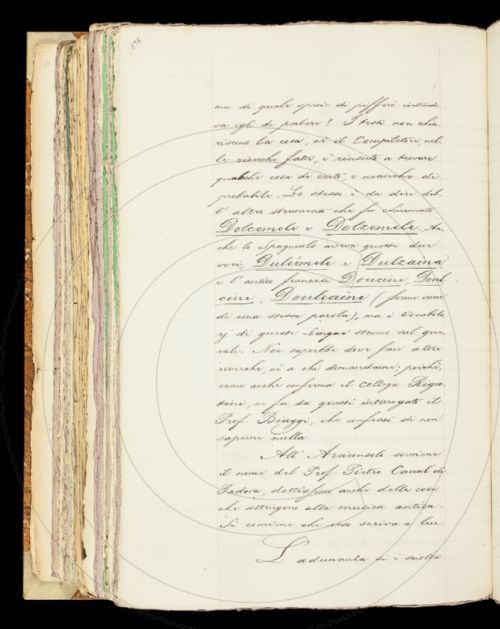 ma di quale specie di pifferi intende
va egli di parlare? I testi non chia
riscono la cosa, nè il Compilatore, nel
le ricerche fatte, è riuscito a trovare
qualche cosa di certo, o neanche di
probabile. Lo stesso è da dire del
l'altro strumento che fu chiamato
Dolcemele e Dolzemele. An
che lo Spagnuolo aveva queste due
voci, Dulcémele e Dulzaina
e l'antico francese Doucine, Doul
cine, Doulcaine (forme varie
di una stessa parola), ma i Vocabola
rj di queste lingue stanno sul gene
rale. Non saprebbe dove fare altre
ricerche, nè a chi domandarne; perchè,
come anche conferma il collega Riga
tini, ne fu da questi interrogato il
Prof. Biaggi, che confessò di non
saperne nulla.
All' Arciconsolo sovviene
il nome del Prof. Pietro Canal di
Padova, dottissimo anche delle cose
che attengono alla musica antica.
Si conviene che esso scriva a lui.
L'adunanza si è sciolta